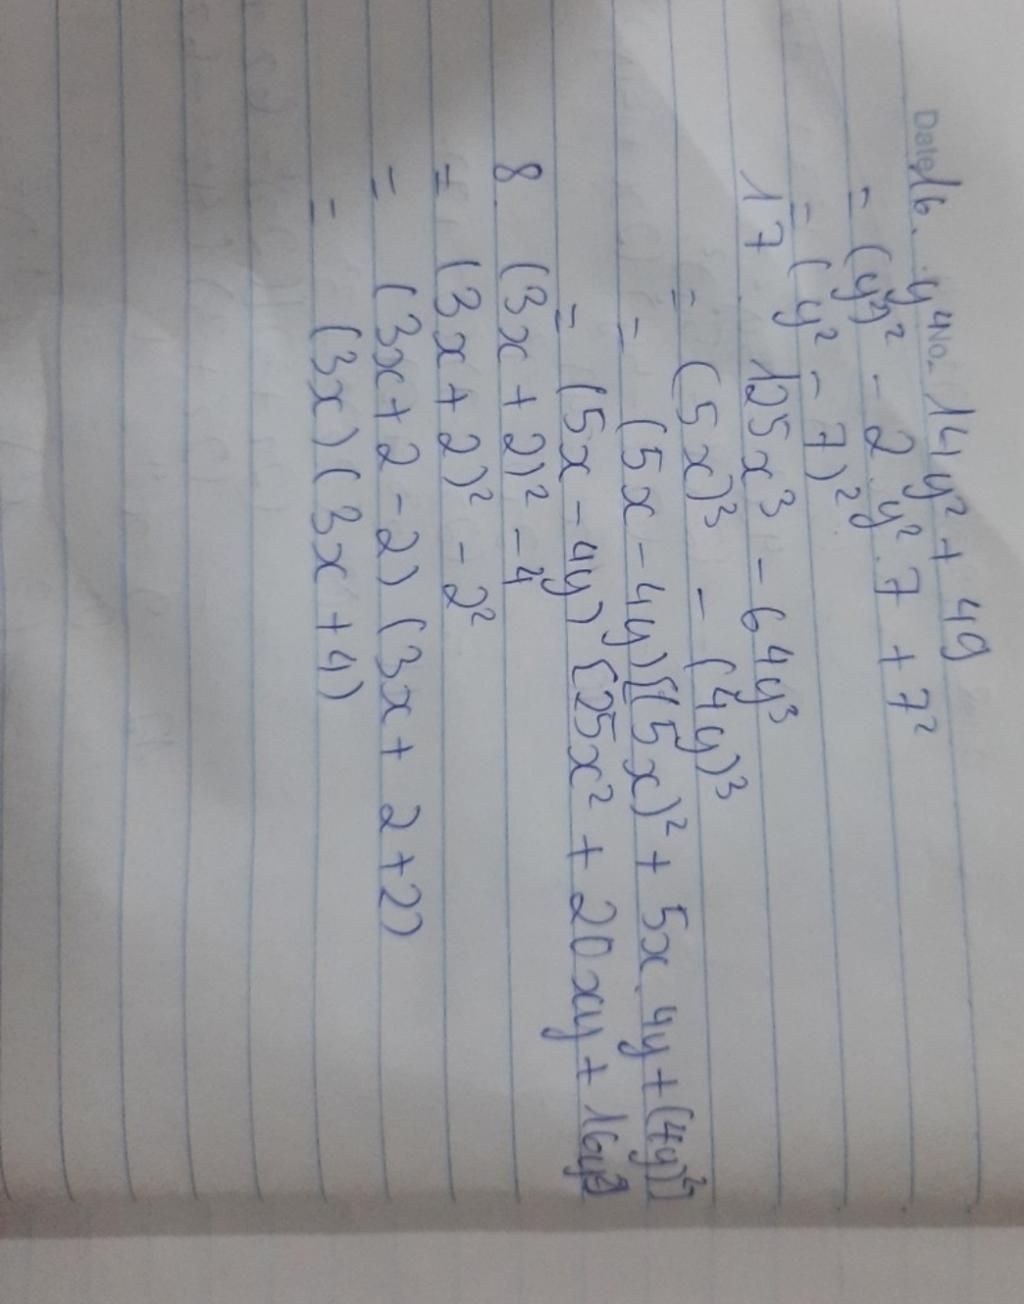 Date No.
16. y⁴ - 14y² + 49
= (y²)² - 2.y².7 + 7²
= (y² - 7)²
17 125x³ - 64y³
= (5x)³ - (4y)³
= (5x - 4y)[(5x)² + 5x.4y + (4y)²]
= (5x - 4y) [25x² + 20xy + 16y²]
8 (3x + 2)² - 4
= (3x + 2)² - 2²
= (3x + 2 - 2) (3x + 2 + 2)
= (3x) (3x + 4)